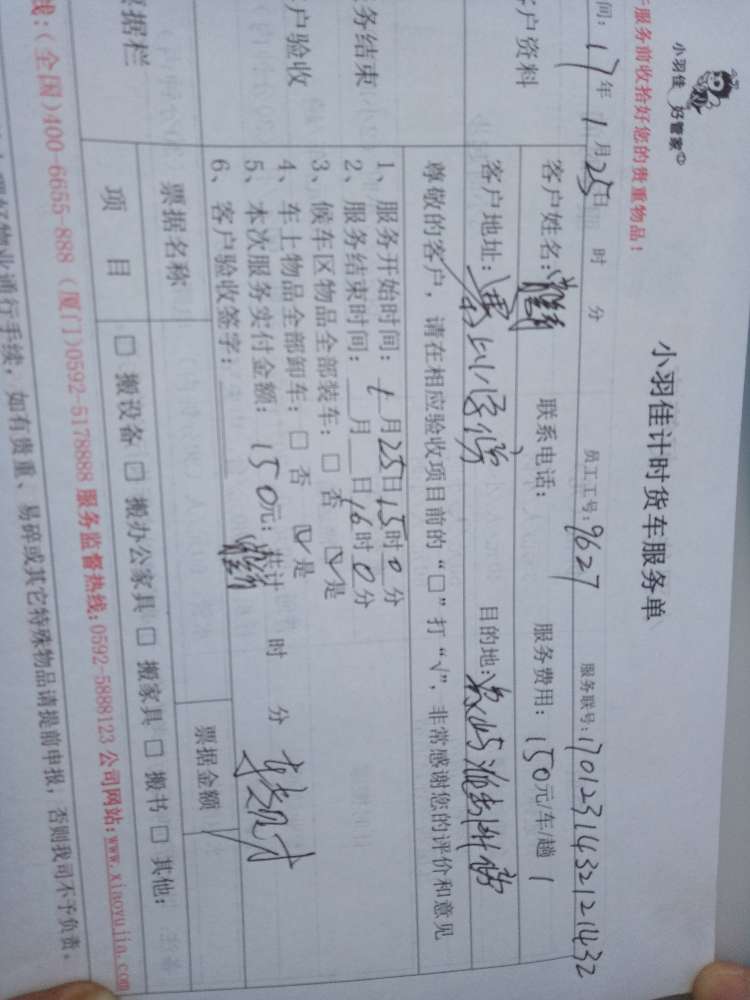 小羽佳 好管家
小羽佳计时货车服务单
服务前收拾好您的贵重物品!
间: 17年1月25日 时 分 员工工号: 9627 服务联号: 1701231432121432
户资料 客户姓名: 联系电话: 服务费用: 150元/车/趟 1
客户地址: 目的地:
尊敬的客户, 请在相应验收项目前的“□”打“√”, 非常感谢您的评价和意见
务结束
户验收
1、服务开始时间: 1月25日15时0分
2、服务结束时间: 月 日16时0分
3、候车区物品全部装车: □ 否 ☑ 是
4、车上物品全部卸车: □ 否 ☑ 是
5、本次服务实付金额: 150元; 共计 时 分
6、客户验收签字:
票据栏 票据名称 票据金额
项 目 □ 搬设备 □ 搬办公家具 □ 搬家具 □ 搬书 □ 其他:
线:(全国)400-6655-888 (厦门)0592-5178888 服务监督热线:0592-5888123 公司网站:www.xiaoyujia.com
理好物业通行手续, 如有贵重、易碎或其它特殊物品请提前申报, 否则我司不予负责。